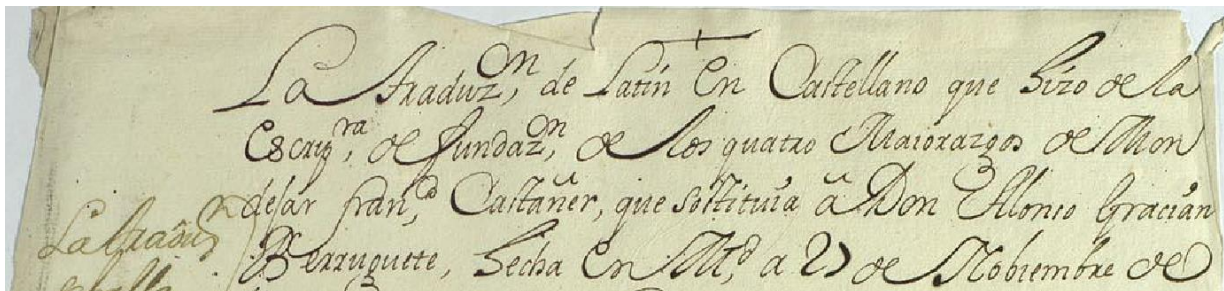 La traduz.on de Latin en Castellano que hizo de la
Escrip.ra de fundaz.on de los quatro Maiorazgos de Mon
dejar fran.co Castañer, que sostituia a Don Alonso Gracian
Berruguete, hecha en M.d a 27 de Nobiembre de
La traduz.n